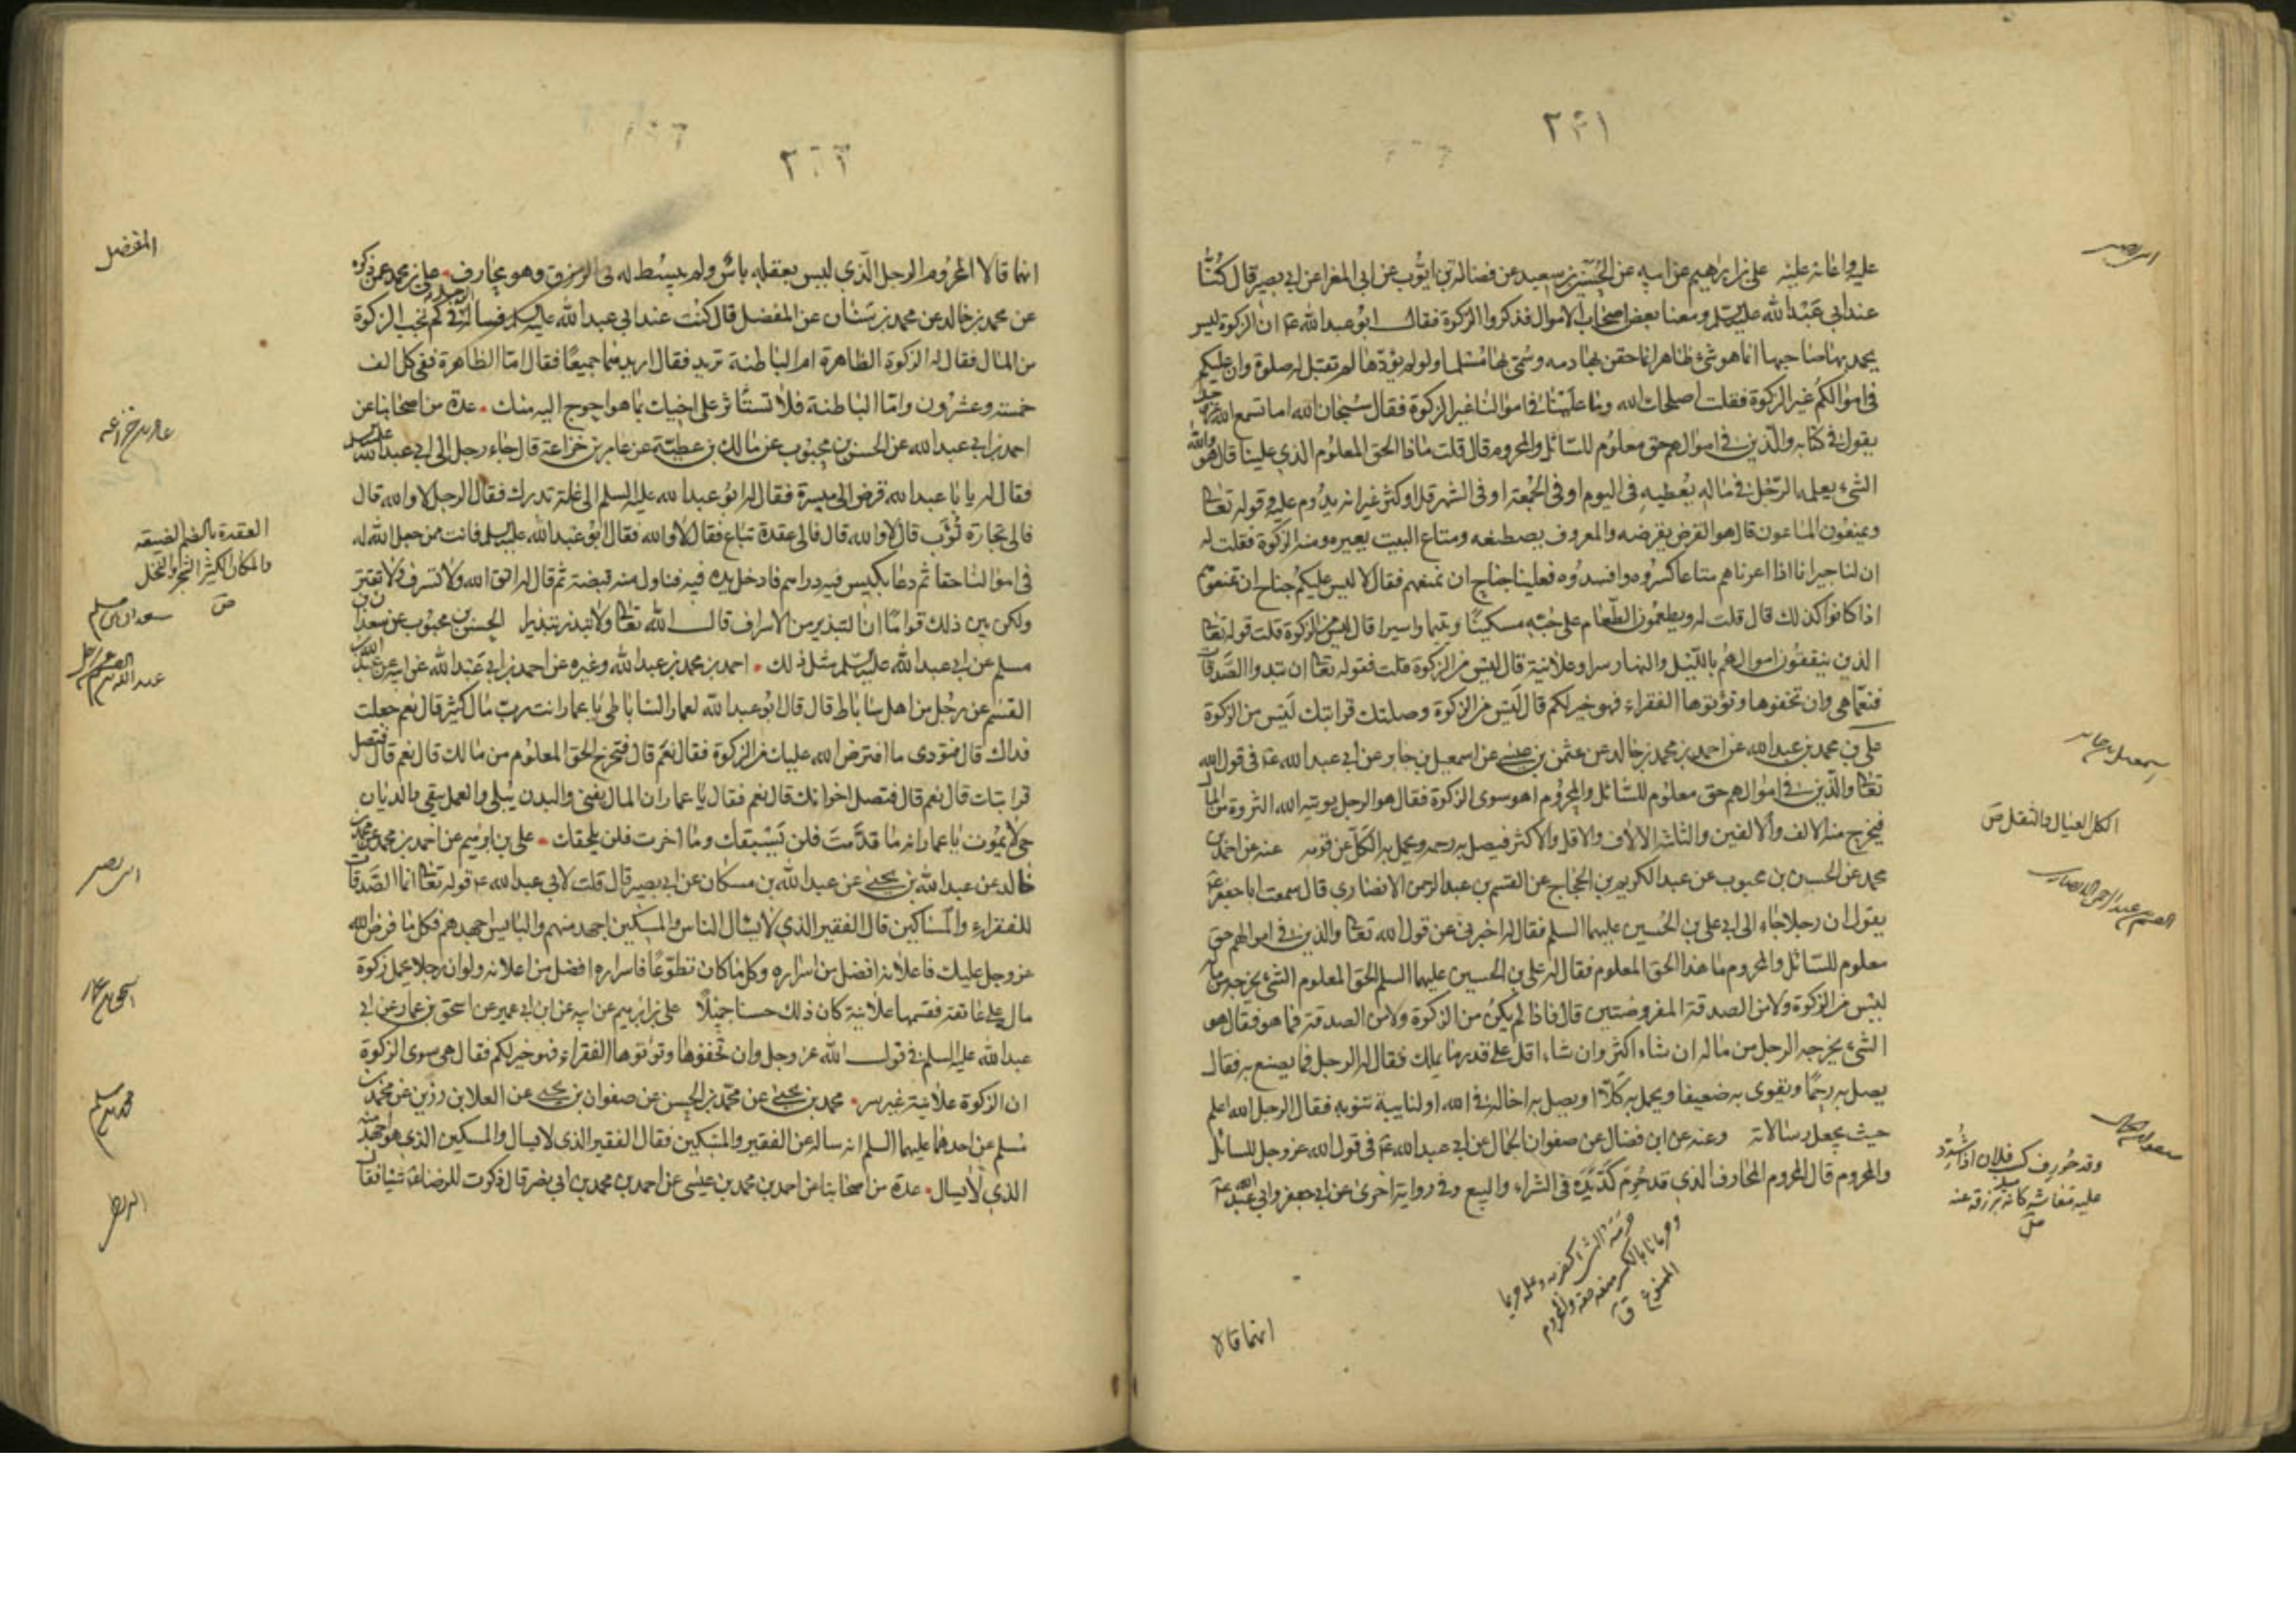 ٢٤١
عليه واغاثة عليه علي بن ابراهيم عن ابيه عن الحسين بن سعيد عن فضالة بن ايوب عن ابي المغرا عن ابي بصير قال كنا
عند ابي عبد الله عليه السلم ومعنا بعض اصحاب الاموال فذكروا الزكوة فقال ابو عبد الله عم ان الزكوة ليس
يحمد بها صاحبها انما هو شيء ظاهر انما حقن بها دمه وسمي بها مسلما ولو لم يؤدها لم تقبل له صلوة وان عليكم
في اموالكم غير الزكوة فقلت اصلحك الله وما علينا في اموالنا غير الزكوة فقال سبحان الله اما تسمع الله عز وجل
يقول في كتابه والذين في اموالهم حق معلوم للسائل والمحروم قال قلت ماذا الحق المعلوم الذي علينا قال هو والله
الشيء يعلمه الرجل في ماله يعطيه في اليوم او في الجمعة او في الشهر قل او كثر غير انه يدوم عليه وقوله تعالى
ويمنعون الماعون قال هو القرض يقرضه والمعروف يصطنعه ومتاع البيت يعيره ومنه الزكوة فقلت له
ان لنا جيرانا اذا اعرناهم متاعا كسروه وافسدوه فعلينا جناح ان نمنعهم فقال لا ليس عليكم جناح ان تمنعوهم
اذا كانوا كذلك قال قلت له ويطعمون الطعام على حبه مسكينا ويتيما واسيرا قال ليس من الزكوة قلت قوله تعالى
الذين ينفقون اموالهم بالليل والنهار سرا وعلانية قال ليس من الزكوة قلت فقوله تعالى ان تبدوا الصدقات
فنعما هي وان تخفوها وتؤتوها الفقراء فهو خير لكم قال ليس من الزكوة وصلتك قرابتك ليس من الزكوة
علي بن محمد بن عبد الله عن احمد بن محمد بن خالد عن عثمن بن عيسى عن اسمعيل بن جابر عن ابي عبد الله عم في قول الله
تعالى والذين في اموالهم حق معلوم للسائل والمحروم اهو سوى الزكوة فقال هو الرجل يؤتيه الله الثروة من المال
فيخرج منه الالف والالفين والثلثة الالاف والاقل والاكثر فيصل به رحمه ويحمل به الكل عن قومه عنه عن احمد بن
محمد عن الحسن بن محبوب عن عبد الكريم بن الحجاج عن القسم بن عبد الرحمن الانصاري قال سمعت ابا جعفر عم
يقول ان رجلا جاء الى ابي علي بن الحسين عليهما السلم فقال له اخبرني عن قول الله تعالى والذين في اموالهم حق
معلوم للسائل والمحروم ما هذا الحق المعلوم فقال له علي بن الحسين عليهما السلم الحق المعلوم الشيء يخرجه من ماله
ليس من الزكوة ولا من الصدقة المفروضتين قال فاذا لم يكن من الزكوة ولا من الصدقة فما هو فقال هو
الشيء يخرجه الرجل من ماله ان شاء اكثر وان شاء اقل على قدر ما يملك فقال له الرجل فما يصنع به فقال
يصل به رحما ويقوى به ضعيفا ويحمل به كلا او يصل به اخا له في الله او لنايبة تنوبه فقال الرجل الله اعلم
حيث يجعل رسالاته وعنه عن ابن فضال عن صفوان الجمال عن ابي عبد الله عم في قول الله عز وجل للسائل
والمحروم قال المحروم المحارف الذي قد حرم كد يده في الشراء والبيع وفي رواية اخرى عن ابي جعفر وابي عبد الله عم
انهما قالا
ابي بصير
اسمعيل بن جابر
الكل العيال والثقل ص
القسم بن عبد الرحمن الانصاري
وقد حورف كسب فلان اذا شدد
عليه معاشه كانه برزقه عنه
٢٤٢
انهما قالا المحروم الرجل الذي ليس بعقله باس ولم يبسط له في الرزق وهو محارف علي بن محمد عمن ذكره
عن محمد بن خالد عن محمد بن سنان عن المفضل قال كنت عند ابي عبد الله عليه السلم فساله رجل في كم تجب الزكوة
من المال فقال له الزكوة الظاهرة ام الباطنة تريد فقال اريدهما جميعا فقال اما الظاهرة ففي كل الف
خمسة وعشرون واما الباطنة فلا تستاثر على اخيك بما هو احوج اليه منك عدة من اصحابنا عن
احمد بن ابي عبد الله عن الحسن بن محبوب عن مالك بن عطية عن عامر بن خزاعة قال جاء رجل الى ابي عبد الله عليه السلم
فقال له يا با عبد الله قرض الى ميسرة فقال له ابو عبد الله عليه السلم الى غلة تدرك فقال الرجل لا والله قال
فالى تجارة تؤب قال لا والله قال فالى عقدة تباع فقال لا والله فقال ابو عبد الله عليه السلم فانت ممن جعل الله له
في اموالنا حقا ثم دعا بكيس فيه دراهم فادخل يده فيه فناوله منه قبضة ثم قال له اتق الله ولا تسرف ولا تقتر
ولكن بين ذلك قواما ان التبذير من الاسراف قال الله تعالى ولا تبذر تبذيرا الحسن بن محبوب عن سعدان بن
مسلم عن ابي عبد الله عليه السلم مثل ذلك احمد بن محمد بن عبد الله وغيره عن احمد بن ابي عبد الله عن ابيه عن عبد الله بن
القسم عن رجل من اهل ساباط قال قال ابو عبد الله لعمار الساباطي يا عمار انت رب مال كثير قال نعم جعلت
فداك قال فتؤدى ما افترض الله عليك من الزكوة فقال نعم قال فتخرج الحق المعلوم من مالك قال نعم قال فتصل
قرابتك قال نعم قال فتصل اخوانك قال نعم فقال يا عمار ان المال يفنى والبدن يبلى والعمل يبقى والديان
حي لا يموت يا عمار انه ما قدمت فلن يسبقك وما اخرت فلن يلحقك علي بن ابرهيم عن احمد بن محمد عن محمد بن
خالد عن عبد الله بن يحيى عن عبد الله بن مسكان عن ابي بصير قال قلت لابي عبد الله عم قوله تعالى انما الصدقات
للفقراء والمساكين قال الفقير الذي لا يسال الناس والمسكين اجهد منهم والبايس اجهدهم فكل ما فرض الله
عز وجل عليك فاعلانه افضل من اسراره وكل ما كان تطوعا فاسراره افضل من اعلانه ولو ان رجلا يحمل زكوة
ماله على عاتقه فقسمها علانية كان ذلك حسنا جميلا علي بن ابرهيم عن ابيه عن ابن ابي عمير عن اسحق بن عمار عن ابي
عبد الله عليه السلم في قول الله عز وجل وان تخفوها وتؤتوها الفقراء فهو خير لكم فقال هي سوى الزكوة
ان الزكوة علانية غير سر محمد بن يحيى عن محمد بن الحسن عن صفوان بن يحيى عن العلا بن رزين عن محمد بن
مسلم عن احدهما عليهما السلم انه ساله عن الفقير والمسكين فقال الفقير الذي لا يسال والمسكين الذي هو اجهد منه
الذي لا يسال عدة من اصحابنا عن احمد بن محمد بن عيسى عن احمد بن محمد بن ابي نصر قال ذكرت للرضا عم شيئا فقال
المفضل
عامر بن خزاعه
العقدة بالضم الضيعة
والمكان الكثير الشجر والنخل
ص
سعدان بن مسلم
ابي بصير
اسحق بن عمار
محمد بن مسلم